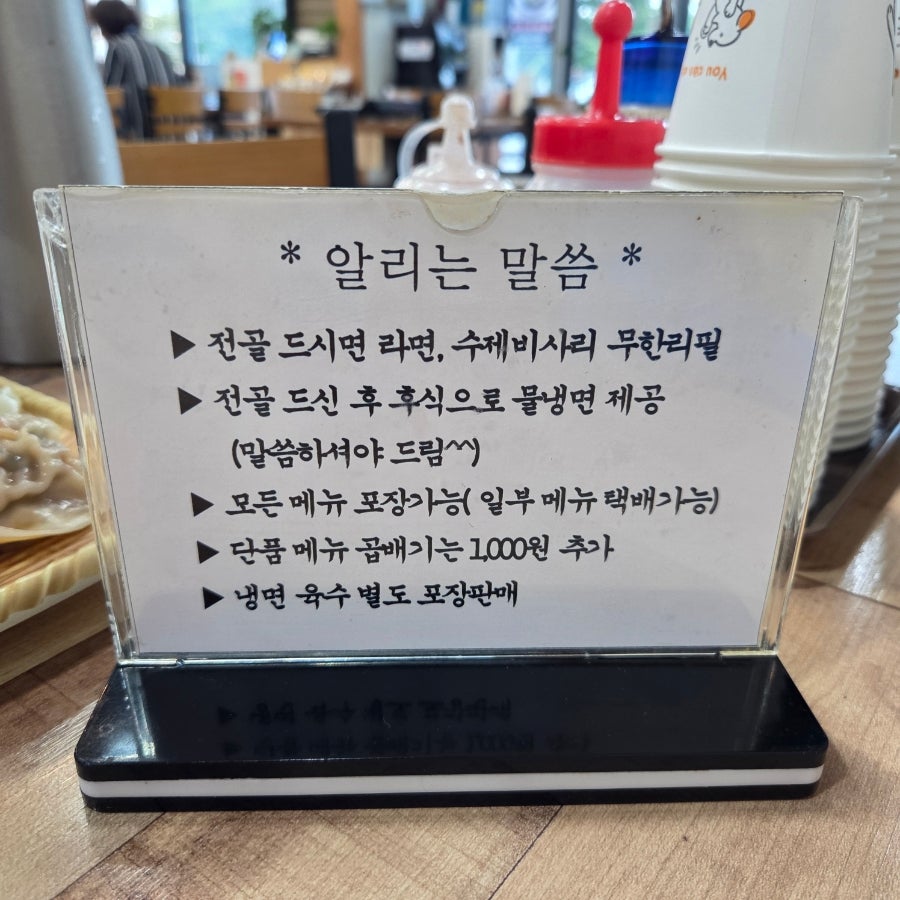 You can
* 알리는 말씀 *
▶ 전골 드시면 라면, 수제비사리 무한리필
▶ 전골 드신 후 후식으로 물냉면 제공
(말씀하셔야 드림^^)
▶ 모든 메뉴 포장가능( 일부 메뉴 택배가능)
▶ 단품 메뉴 곱배기는 1,000원 추가
▶ 냉면 육수 별도 포장판매